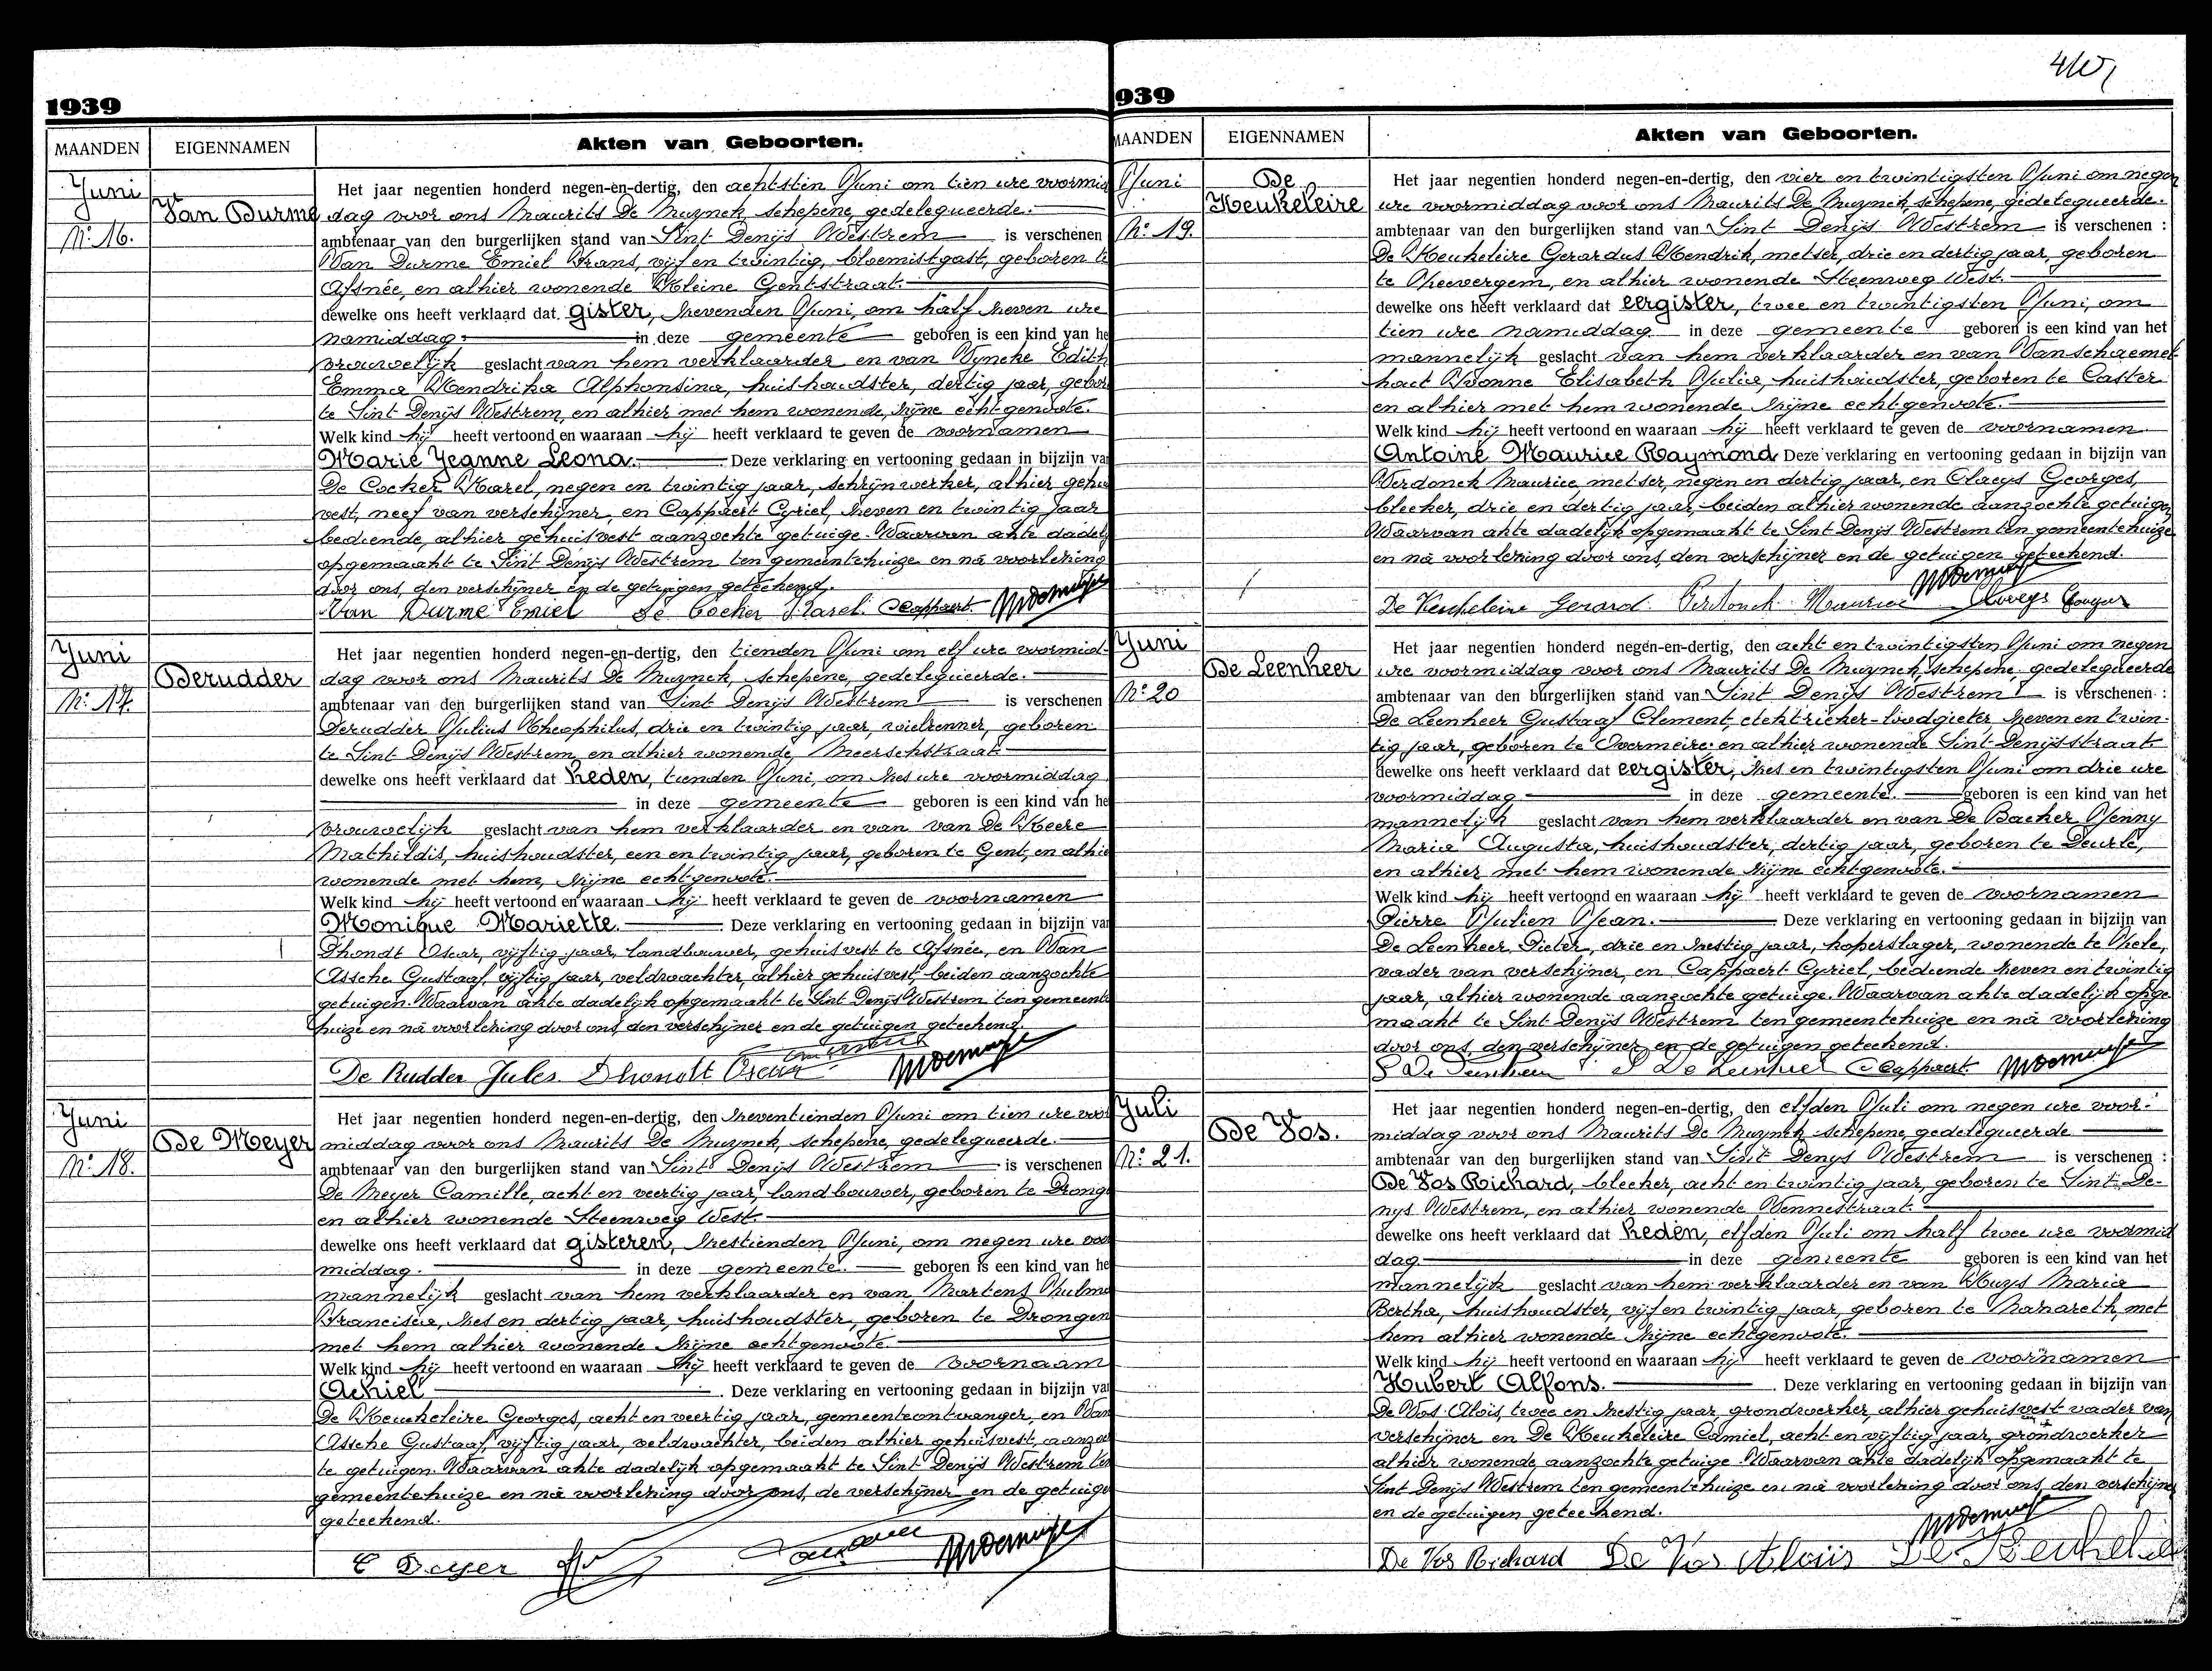 1939
MAANDEN EIGENNAMEN Akten van Geboorten.
Juni
Van Durme
Nr. 16.
Het jaar negentien honderd negen-en-dertig, den achtsten Juni om tien ure voormid
dag voor ons Maurits De Muynck, schepene, gedelegueerde.
ambtenaar van den burgerlijken stand van Sint Denijs Westrem is verschenen
Van Durme Emiel Frans, vijf en twintig, bloemistgast, geboren te
Afsnée, en alhier wonende Kleine Gentstraat.
dewelke ons heeft verklaard dat gister, zevenden Juni, om half zeven ure
namiddag in deze gemeente geboren is een kind van he
vrouwelijk geslacht van hem verklaarder en van Wyncke Edith
Emma Hendrika Alphonsina, huishoudster, dertig jaar, gebor
te Sint Denijs Westrem, en alhier met hem wonende, zijne echtgenoote.
Welk kind hij heeft vertoond en waaraan hij heeft verklaard te geven de voornamen
Marie Jeanne Leona. Deze verklaring en vertooning gedaan in bijzijn va
De Cocker Karel, negen en twintig jaar, schrijnwerker, alhier gehui
vest, neef van verschijner, en Cappaert Cyriel, zeven en twintig jaar
bediende, alhier gehuisvest aanzochte getuige. Waarvan akte dadel
opgemaakt te Sint Denijs Westrem ten gemeentehuize en na voorlezing
door ons, den verschijner en de getuigen geteekend.
Van Durme Emiel De Cocker Karel CCappaert
Juni
Derudder
Nr. 17.
Het jaar negentien honderd negen-en-dertig, den tienden Juni om elf ure voormid-
dag voor ons Maurits De Muynck, schepene, gedelegueerde.
ambtenaar van den burgerlijken stand van Sint Denijs Westrem is verschenen
Derudder Julius Theophilus, drie en twintig jaar, wielrenner, geboren
te Sint Denijs Westrem, en alhier wonende, Meerschstraat
dewelke ons heeft verklaard dat heden, tienden Juni, om zes ure voormiddag
in deze gemeente geboren is een kind van he
vrouwelijk geslacht van hem verklaarder en van van De Keere
Mathildis, huishoudster, een en twintig jaar, geboren te Gent, en alhie
wonende met hem, zijne echtgenoote.
Welk kind hij heeft vertoond en waaraan hij heeft verklaard te geven de voornamen
Monique Mariette. Deze verklaring en vertooning gedaan in bijzijn va
Dhondt Oscar, vijftig jaar, landbouwer, gehuisvest te Afsnée, en Van
Assche Gustaaf, vijftig jaar, veldwachter, alhier gehuisvest, beiden aanzochte
getuigen. Waarvan akte dadelijk opgemaakt te Sint Denijs Westrem ten gemeente
huize en na voorlezing door ons, den verschijner en de getuigen geteekend.
De Rudder Jules Dhondt Oscar
Juni
De Meyer
Nr. 18.
Het jaar negentien honderd negen-en-dertig, den zeventienden Juni om tien ure voor
middag voor ons Maurits De Muynck, schepene, gedelegueerde.
ambtenaar van den burgerlijken stand van Sint Denijs Westrem is verschenen
De Meyer Camille, acht en veertig jaar, landbouwer, geboren te Dronge
en alhier wonende Steenweg West.
dewelke ons heeft verklaard dat gisteren, zestienden Juni, om negen ure voor
middag. in deze gemeente. geboren is een kind van he
mannelijk geslacht van hem verklaarder en van Martens Zulma
Francisca, zes en dertig jaar, huishoudster, geboren te Drongen
met hem alhier wonende zijne echtgenoote.
Welk kind hij heeft vertoond en waaraan hij heeft verklaard te geven de voornaam
Achiel. Deze verklaring en vertooning gedaan in bijzijn va
De Keukeleire Georges, acht en veertig jaar, gemeenteontvanger, en Van
Assche Gustaaf, vijftig jaar, veldwachter, beiden alhier gehuisvest, aanzoch
te getuigen. Waarvan akte dadelijk opgemaakt te Sint Denijs Westrem ten
gemeentehuize en na voorlezing door ons, de verschijner en de getuige
geteekend.
C Demeyer
939
MAANDEN EIGENNAMEN Akten van Geboorten.
Juni
De
Keukeleire
Nr. 19.
Het jaar negentien honderd negen-en-dertig, den vier en twintigsten Juni om negen
ure voormiddag voor ons Maurits De Muynck, schepene, gedelegueerde.
ambtenaar van den burgerlijken stand van Sint Denijs Westrem is verschenen :
De Keukeleire Gerardus Hendrik, metser, drie en dertig jaar, geboren
te Zwevergem, en alhier wonende Steenweg West.
dewelke ons heeft verklaard dat eergister, twee en twintigsten Juni, om
tien ure namiddag in deze gemeente geboren is een kind van het
mannelijk geslacht van hem verklaarder en van Vanschaemel
hout Yvonne Elisabeth Julia, huishoudster, geboren te Caster
en alhier met hem wonende zijne echtgenoote.
Welk kind hij heeft vertoond en waaraan hij heeft verklaard te geven de voornamen
Antoine Maurice Raymond Deze verklaring en vertooning gedaan in bijzijn van
Verdonck Maurice, metser, negen en dertig jaar, en Claeys Georges,
bleeker, drie en dertig jaar, beiden alhier wonende aanzochte getuigen
Waarvan akte dadelijk opgemaakt te Sint Denijs Westrem ten gemeentehuize
en na voorlezing door ons, den verschijner en de getuigen geteekend.
De Keukeleire Gerard Verdonck Maurice Claeys
Juni
De Leenheer
Nr. 20
Het jaar negentien honderd negen-en-dertig, den acht en twintigsten Juni om negen
ure voormiddag voor ons Maurits De Muynck, schepene gedelegueerde
ambtenaar van den burgerlijken stand van Sint Denijs Westrem is verschenen :
De Leenheer Gustaaf Clement, elektrieker-loodgieter, zeven en twin-
tig jaar, geboren te Overmeire en alhier wonende Sint-Denijsstraat
dewelke ons heeft verklaard dat eergister, zes en twintigsten Juni om drie ure
voormiddag in deze gemeente. geboren is een kind van het
mannelijk geslacht van hem verklaarder en van De Backer Jenny
Maria Augusta, huishoudster, dertig jaar, geboren te Deurle,
en alhier met hem wonende zijne echtgenoote.
Welk kind hij heeft vertoond en waaraan hij heeft verklaard te geven de voornamen
Pierre Julien Jean. Deze verklaring en vertooning gedaan in bijzijn van
De Leenheer Pieter, drie en zestig jaar, koperslager, wonende te Zele,
vader van verschijner, en Cappaert Cyriel, bediende zeven en twintig
jaar, alhier wonende aanzochte getuige. Waarvan akte dadelijk opge
maakt te Sint Denijs Westrem ten gemeentehuize en na voorlezing
door ons, den verschijner en de getuigen geteekend.
G De Leenheer P De Leenheer CCappaert
Juli
De Vos.
Nr. 21.
Het jaar negentien honderd negen-en-dertig, den elfden Juli om negen ure voor-
middag voor ons Maurits De Muynck schepene, gedelegueerde
ambtenaar van den burgerlijken stand van Sint Denys Westrem is verschenen :
De Vos Richard, bleeker, acht en twintig jaar, geboren te Sint De-
nys Westrem, en alhier wonende Vennestraat.
dewelke ons heeft verklaard dat heden, elfden Juli om half twee ure voormid
dag in deze gemeente geboren is een kind van het
mannelijk geslacht van hem verklaarder en van Huys Maria
Bertha, huishoudster, vijf en twintig jaar, geboren te Nazareth, met
hem alhier wonende zijne echtgenoote.
Welk kind hij heeft vertoond en waaraan hij heeft verklaard te geven de voornamen
Hubert Alfons. Deze verklaring en vertooning gedaan in bijzijn van
De Vos Alois, twee en zestig jaar, grondwerker, alhier gehuisvest vader van
verschijner en De Keukeleire Camiel, acht en vijftig jaar, grondwerker
alhier wonende, aanzochte getuige. Waarvan akte dadelijk opgemaakt te
Sint Denijs Westrem ten gemeentehuize en na voorlezing door ons, den verschijner
en de getuigen geteekend.
De Vos Richard De Vos Aloiis De Keukele